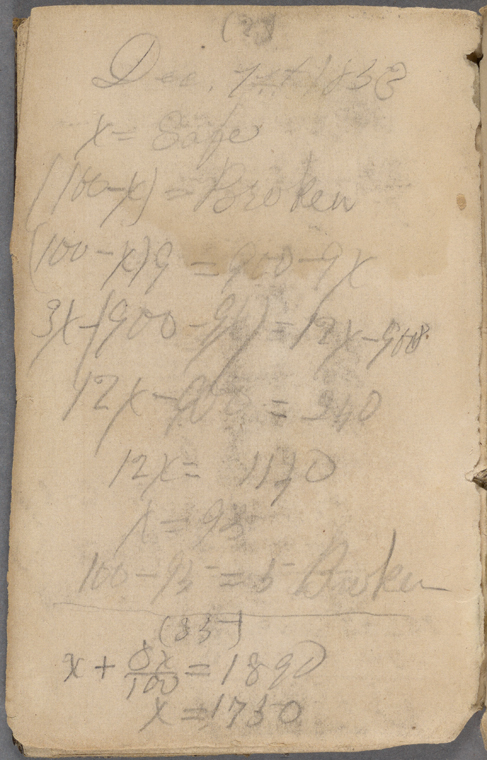 Dec, 7th 1858
x = Safe
(100-x) = Broken
(100-x)9 = 900-9x
3x-(900-9x) = 12x-900
12x-900 = 240
12x = 1140
x = 95
100-95 = 5 Broken
(85)
x + 8x/100 = 1890
x = 1750